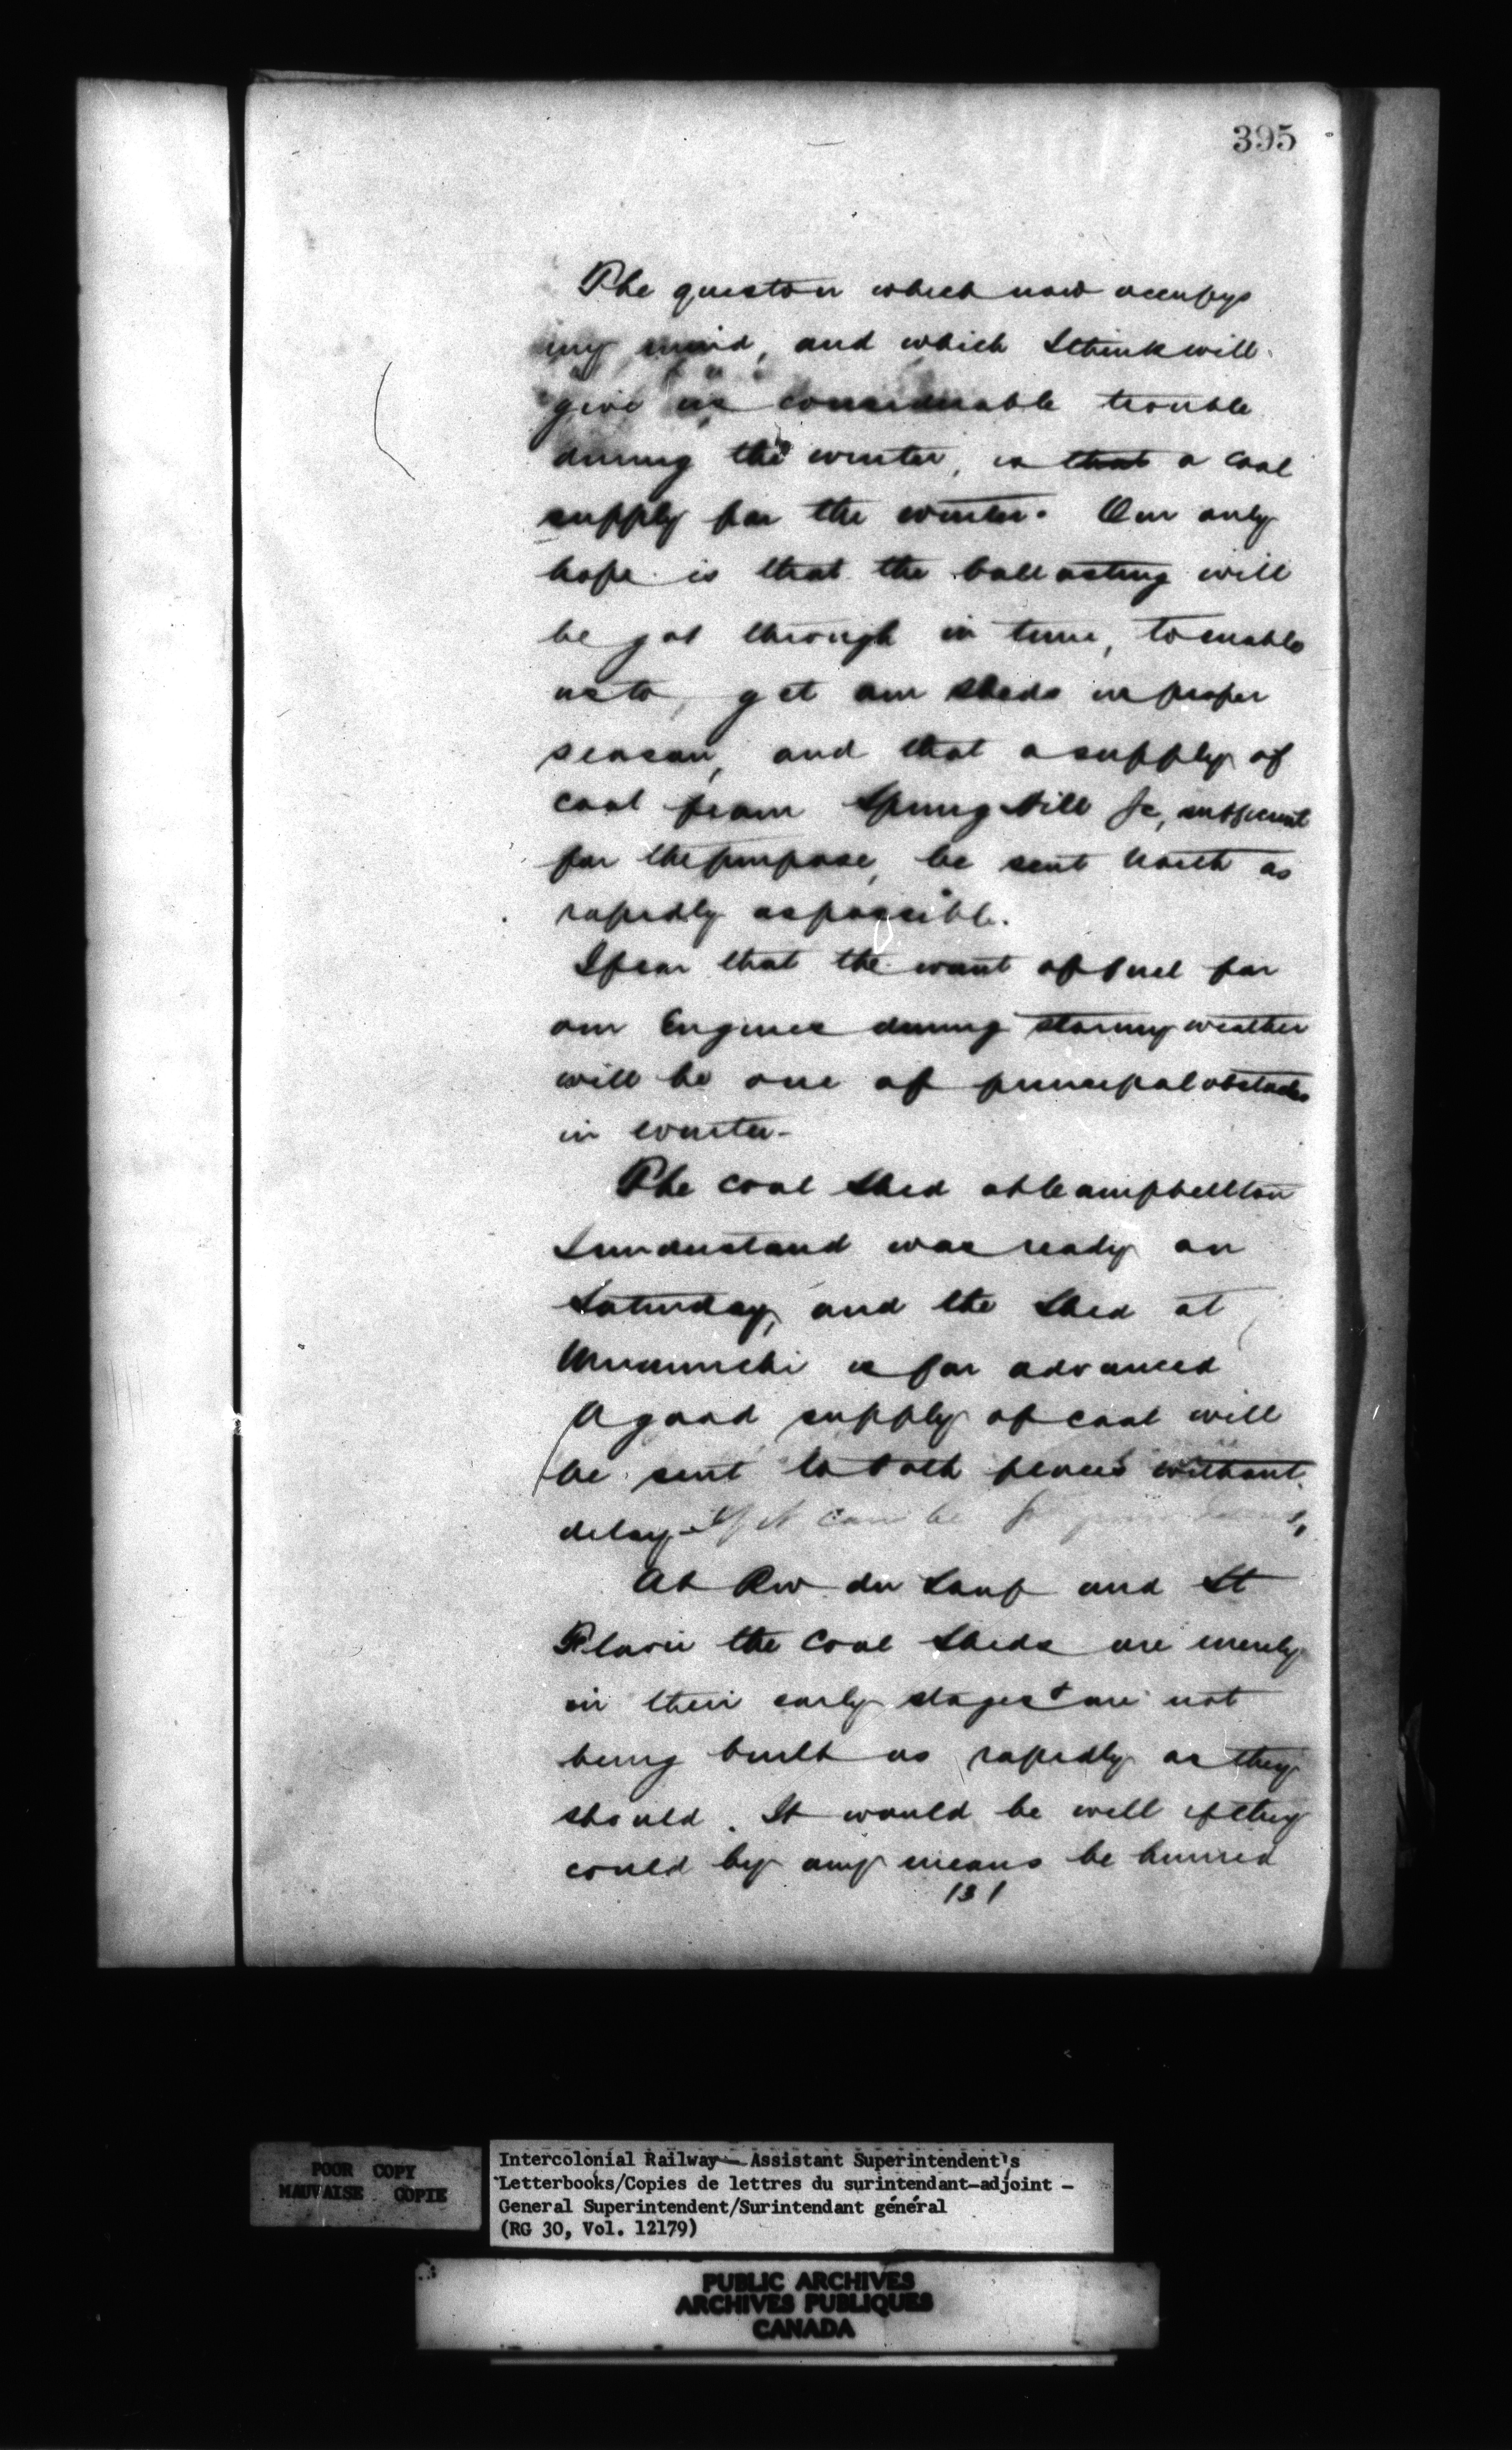 395
The queston which now occupys
my mind, and which I think will
give us considerable trouble
during the winter, is that a coal
supply for the winter. Our only
hope is that the ballasting will
be got through in time, to enable
us to get our sheds in proper
season, and that a supply of
coal from Spring Hill &c, sufficient
for the purpose, be sent North as
rapidly as possible.
I fear that the want of fuel for
our Engines during stormy weather
will be one of principal obstacles
in winter-
The coal shed at Campbellton
I understand was ready on
Saturday, and the shed at
Miramichi is far advanced
A good supply of coal will
be sent to both places without
delay - If it can be
At Riv du Loup and St
Flavie the coal sheds are merely
in their early stages & are not
being built as rapidly as they
should. It would be well if they
could by any means be hurried
131
POOR COPY
MAUVAISE COPIE
Intercolonial Railway - Assistant Superintendent's
Letterbooks/Copies de lettres du surintendant-adjoint -
General Superintendent/Surintendant général
(RG 30, Vol. 12179)
PUBLIC ARCHIVES
ARCHIVES PUBLIQUES
CANADA